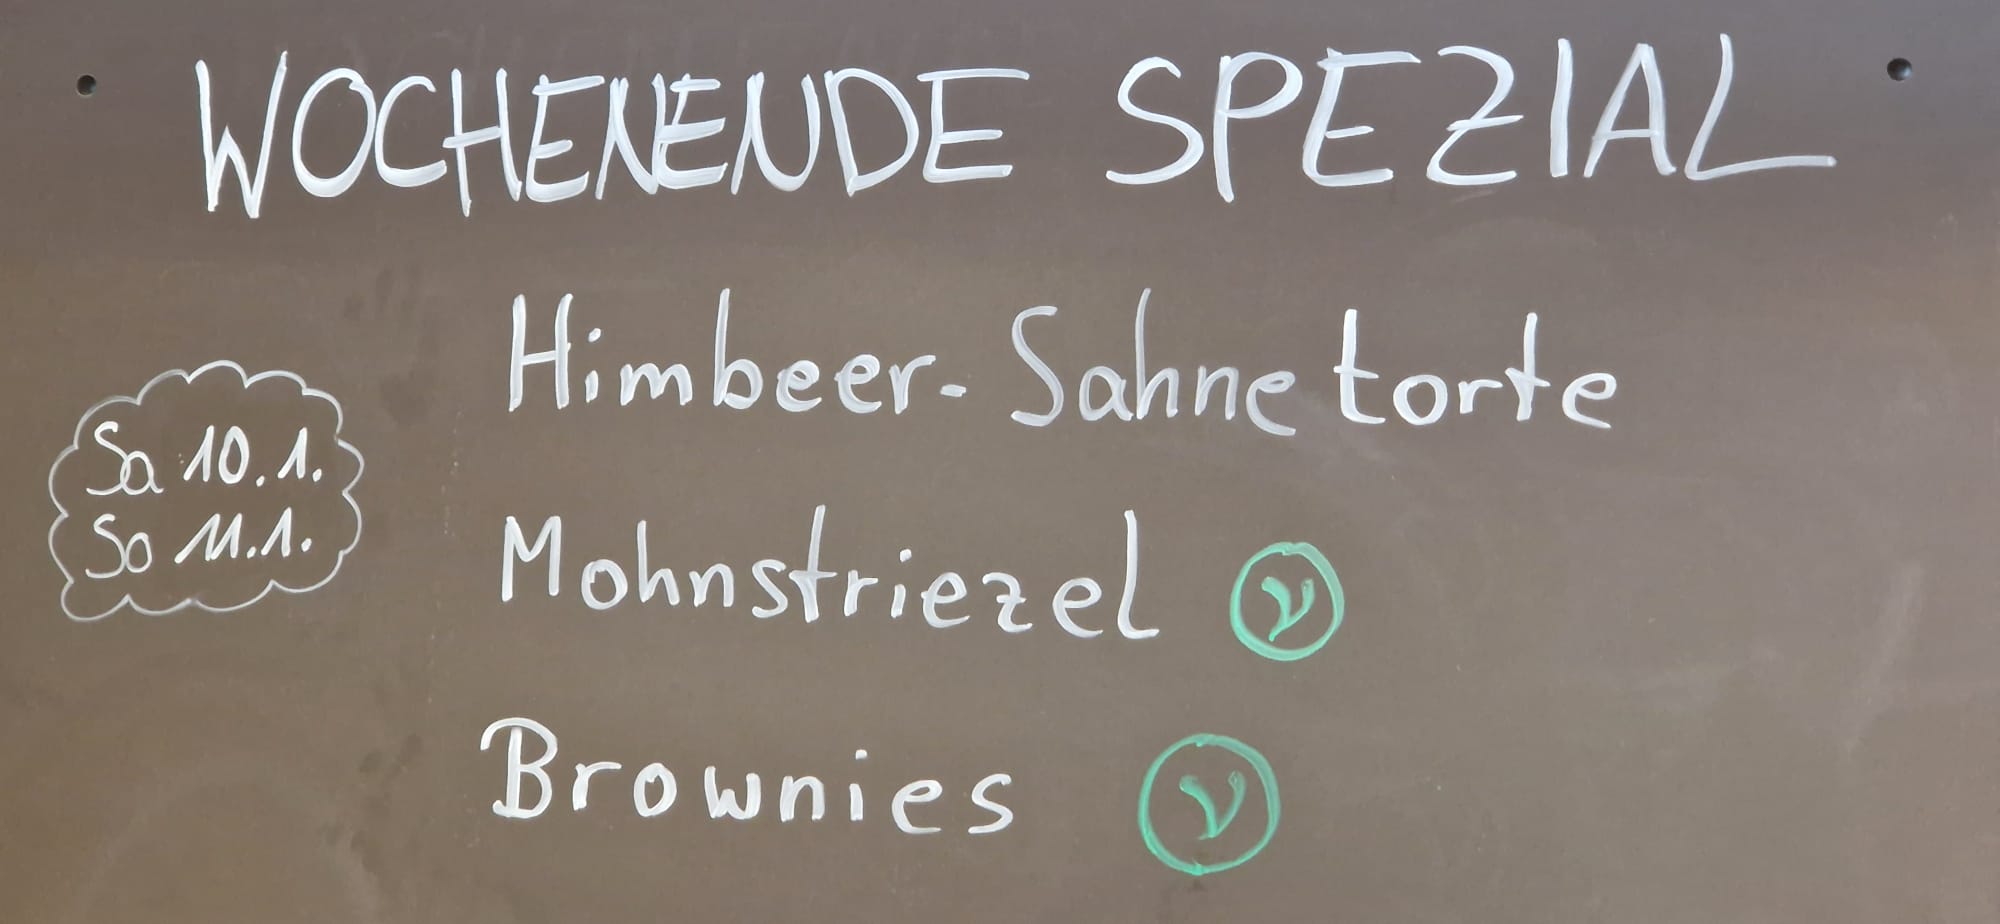 WOCHENENDE SPEZIAL
Himbeer-Sahnetorte
Sa 10.1.
So 11.1.
Mohnstriezel V
Brownies V